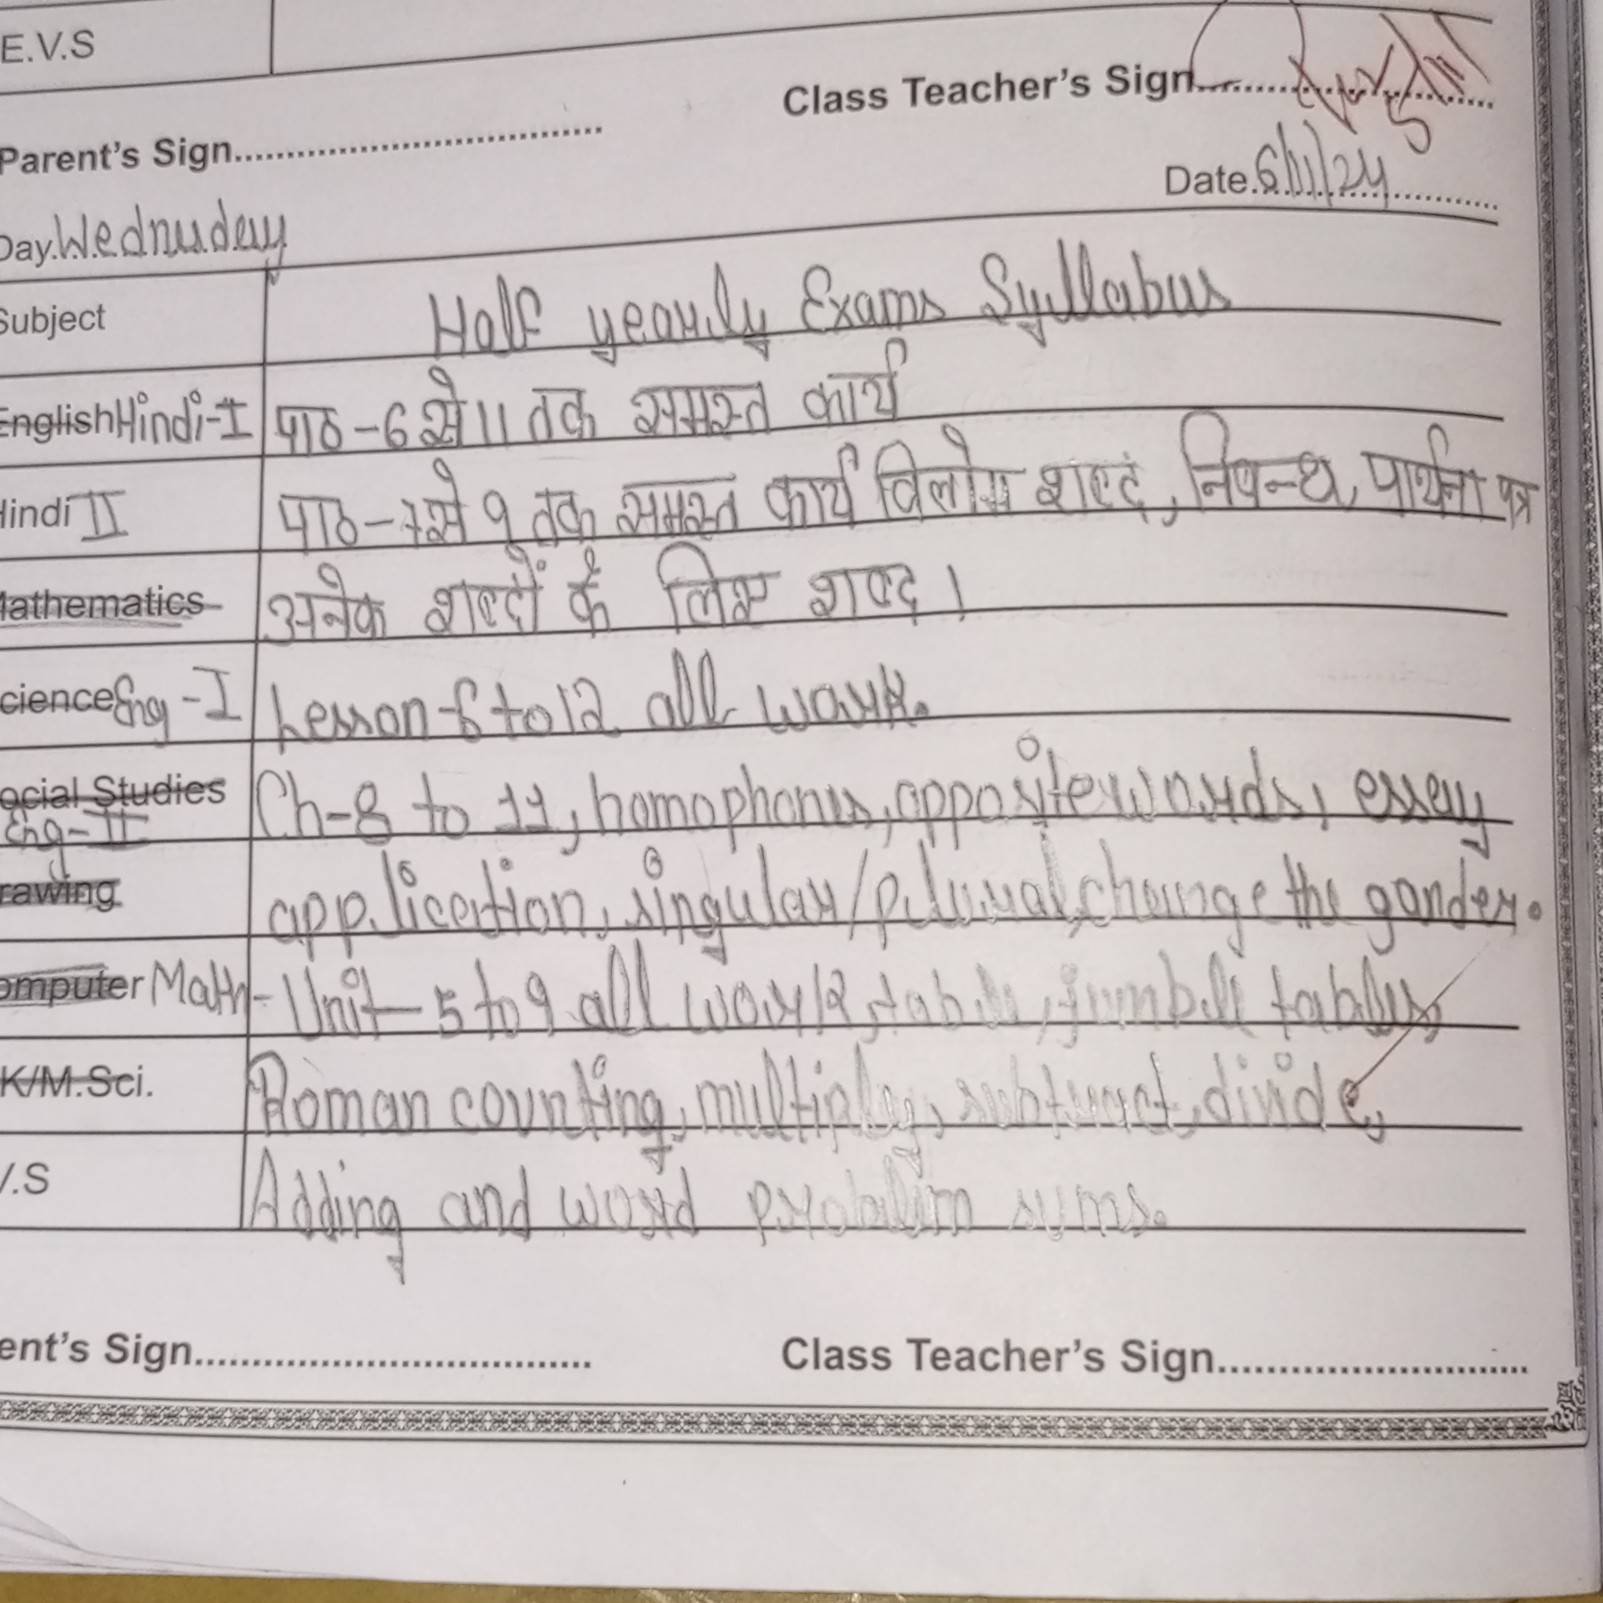 E.V.S
Class Teacher's Sign
Parent's Sign
Date. 6/11/24
Day. Wednesday
Subject Half yearly Exams Syllabus
English Hindi-I पाठ-6 से 11 तक समस्त कार्य
Hindi II पाठ-7 से 9 तक समस्त कार्य विलोम शब्द, निबन्ध, पार्थना पत्र
Mathematics अनेक शब्दों के लिए शब्द।
cience Eng-I Lesson-6 to 12 all work.
ocial Studies Ch-8 to 11, homophones, opposite words, essay
Eng-II
rawing application, singular/plural, change the gander.
omputer Math- Unit-5 to 9 all work, table, jumble tables
K/M.Sci. Roman counting, multiplay, subtract, divide,
V.S Adding and word problem sums.
ent's Sign
Class Teacher's Sign